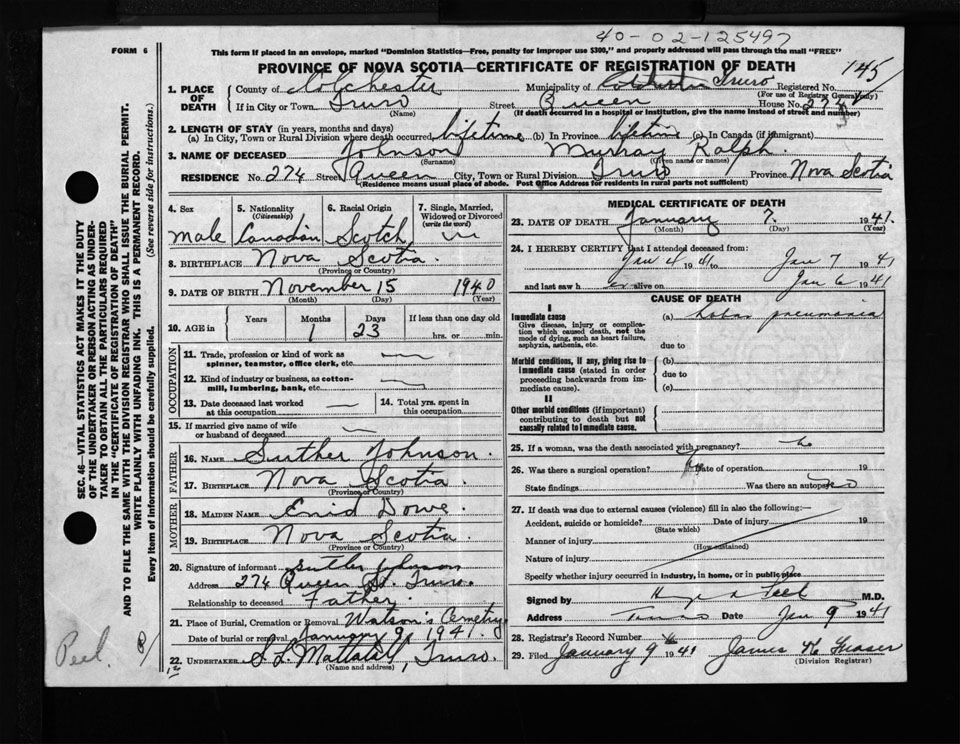 40-02-125497
FORM 6
This form if placed in an envelope, marked "Dominion Statistics—Free, penalty for improper use $300," and properly addressed will pass through the mail "FREE"
PROVINCE OF NOVA SCOTIA—CERTIFICATE OF REGISTRATION OF DEATH
145
1. PLACE OF DEATH
County of Colchester Municipality of Truro Registered No.
(For use of Registrar General only)
If in City or Town Truro Street Queen House No. 274
(Name) (If death occurred in a hospital or institution, give the name instead of street and number)
2. LENGTH OF STAY (in years, months and days)
(a) In City, Town or Rural Division where death occurred lifetime (b) In Province lifetime (c) In Canada (if immigrant)
3. NAME OF DECEASED Johnson Murray Ralph.
(Surname) (Given name or names)
RESIDENCE No. 274 Street Queen City, Town or Rural Division Truro Province Nova Scotia
(Residence means usual place of abode. Post Office Address for residents in rural parts not sufficient)
4. Sex 5. Nationality (Citizenship) 6. Racial Origin 7. Single, Married, Widowed or Divorced (write the word)
Male Canadian Scotch
8. BIRTHPLACE Nova Scotia.
(Province or Country)
9. DATE OF BIRTH November 15 1940
(Month) (Day) (Year)
10. AGE in Years Months Days If less than one day old
1 23 hrs. or min.
OCCUPATION
11. Trade, profession or kind of work as spinner, teamster, office clerk, etc. —
12. Kind of industry or business, as cotton-mill, lumbering, bank, etc. —
13. Date deceased last worked at this occupation — 14. Total yrs. spent in this occupation
15. If married give name of wife or husband of deceased —
FATHER
16. NAME Johnson.
17. BIRTHPLACE Nova Scotia.
(Province or Country)
MOTHER
18. MAIDEN NAME Enid Dowe.
19. BIRTHPLACE Nova Scotia.
(Province or Country)
20. Signature of informant Johnson
Address 274 Queen St. Truro.
Relationship to deceased Father.
21. Place of Burial, Cremation or Removal Watson's Cemetery
Date of burial or removal January 9, 1941.
22. UNDERTAKER Truro.
(Name and address)
MEDICAL CERTIFICATE OF DEATH
23. DATE OF DEATH January 7. 1941.
(Month) (Day) (Year)
24. I HEREBY CERTIFY that I attended deceased from:
Jan 4 1941 to Jan 7 1941
and last saw h alive on Jan 6 1941
CAUSE OF DEATH
I
Immediate cause
Give disease, injury or complication which caused death, not the mode of dying, such as heart failure, asphyxia, asthenia, etc.
(a) Lobar pneumonia
due to
Morbid conditions, if any, giving rise to immediate cause (stated in order proceeding backwards from immediate cause).
(b)
due to
(c)
II
Other morbid conditions (if important) contributing to death but not causally related to immediate cause.
25. If a woman, was the death associated with pregnancy? no
26. Was there a surgical operation? no Date of operation 19
State findings Was there an autopsy? no
27. If death was due to external causes (violence) fill in also the following:—
Accident, suicide or homicide? Date of injury 19
(State which)
Manner of injury
(How sustained)
Nature of injury
Specify whether injury occurred in industry, in home, or in public place
Signed by Peel M.D.
Address Truro Date Jan 9 1941
28. Registrar's Record Number
29. Filed January 9 1941 James K Fraser
(Division Registrar)
SEC. 46—VITAL STATISTICS ACT MAKES IT THE DUTY OF THE UNDERTAKER OR PERSON ACTING AS UNDERTAKER TO OBTAIN ALL THE PARTICULARS REQUIRED IN THE "CERTIFICATE OF REGISTRATION OF DEATH" AND TO FILE THE SAME WITH THE DIVISION REGISTRAR WHO SHALL ISSUE THE BURIAL PERMIT.
WRITE PLAINLY WITH UNFADING INK. THIS IS A PERMANENT RECORD.
Every item of information should be carefully supplied. (See reverse side for instructions.)
Peel.